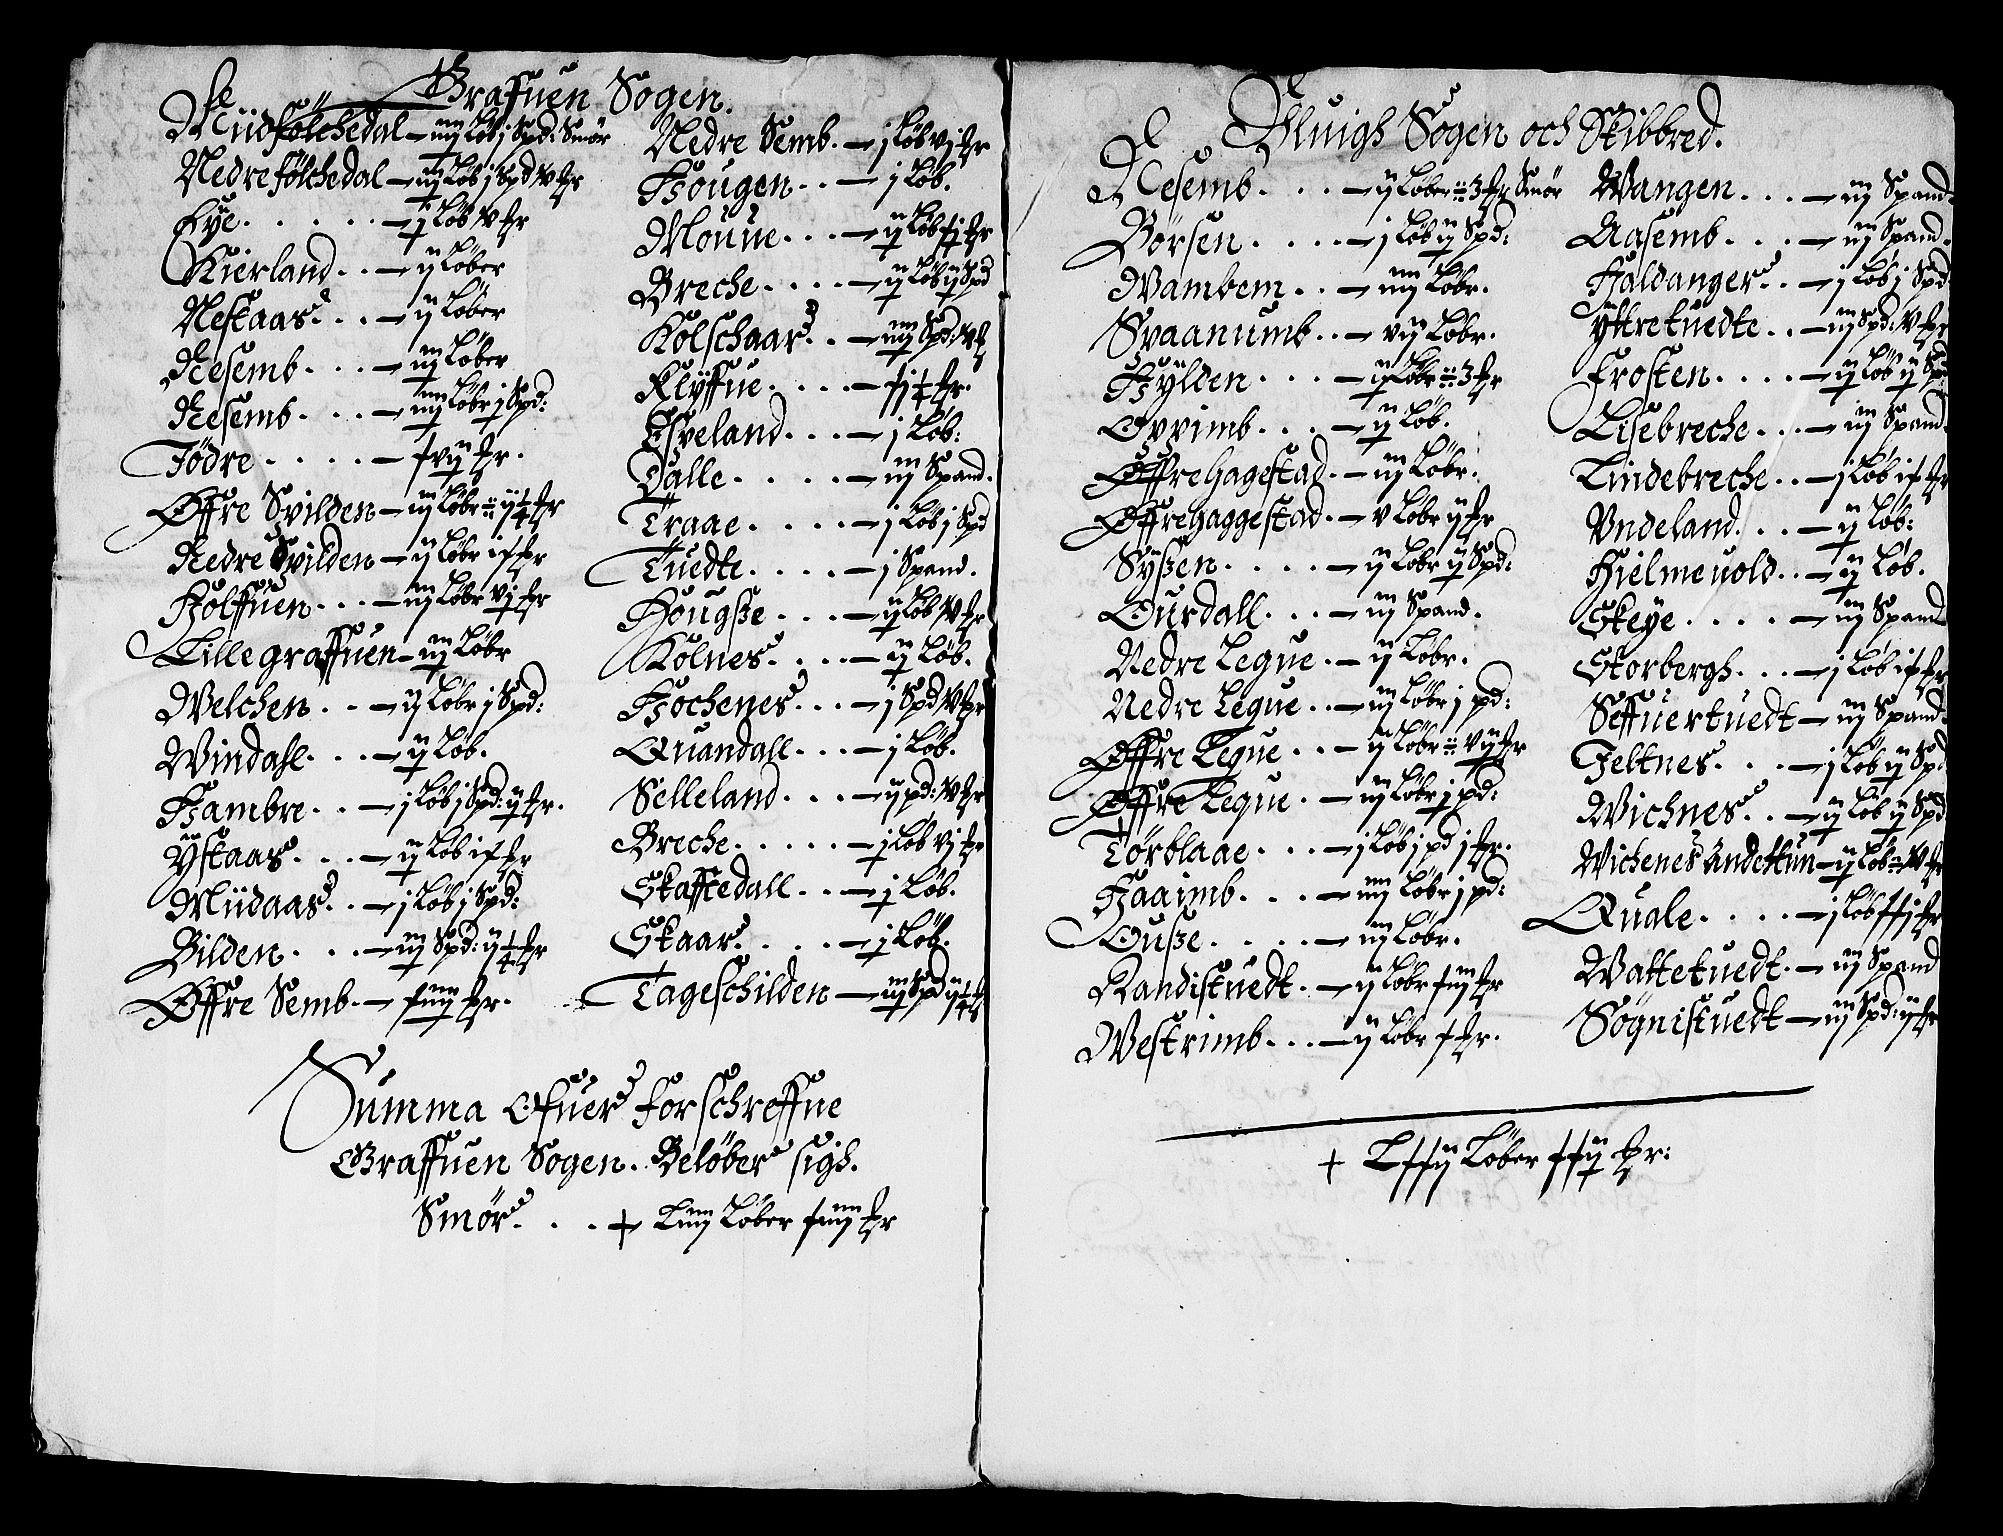 Graffuen Sogen.
Miidfölchedal – iiij Løb j Spd: Smör
Nedre fölchedal – iij Løb j Spd
Eye. – j Løb
Kierland. – ij Løber
Nestaas. – ij Løber
Nesemb. – iij Løber
Nesemb. – iiij Løbr j Spd:
Födre
Øffre Spilden – iij Løbr
Nedre Spilden – ij Løbr
Holffuen. – iij Løbr vj
Lille graffuen – iij Løbr
Velchen. – ij Løbr j Spd:
Windahl. – ij Løb.
Hambre. – j Løb j Spd: ij
Ystaas. – ij Løb
Miidaas. – j Løb j Spd:
Bilden. – iij Spd:
Øffre Semb.
Nedre Semb. – j Løb vj
Hougen. – j Løb.
Moüne. – ij Løb
Breche. – ij Løb ij Spd
Kolschaar. – iiij Spd:
Klÿffue.
Espeland. – j Løb:
Dalle. – iij Spand.
Traae. – j Løb j Spd
Tuedte. – j Spand.
Hougße. – ij Løb
Kolnes. – ij Løb.
Hochenes. – j Spd
Quandall. – j Løb.
Selleland. – ij pd:
Breche. – j Løb vj
Skafftedall. – j Løb.
Skaar. – j Løb.
Tageschilden – iij Spd
Summa Ofuer forschreffne
Graffuen Sogen. Beløber sigh.
Smør. + Liiij Løber
Vluigh Sogen och Skibbred.
Nesemb. – ij Løber 3 Smör
Börsen. – j Løb ij Spd:
Wambem. – iiij Løbr.
Spaanumb. – vij Løbr.
Hylden. – ij Løbr 3
Oppimb. – ij Løb.
Øffre Hagestad. – iij Løbr.
Øffre Haggestad. – v Løbr ij
Syßen. – ij Løbr ij Spd:
Ourdall. – iij Spand.
Nedre Legue. – ij Løbr.
Nedre Legue. – iij Løbr j pd:
Øffre Legue. – ij Løbr vij
Øffre Legue. – iij Løbr j pd:
Törblaae. – j Løb j pd j
Haaimb. – iiij Løbr j pd:
Ouße. – iij Løbr.
Randistuedt. – ij Løbr
Westrimb. – ij Løbr
Wangen. – iij Spand.
Aasemb. – iij Spand.
Haldanger. – j Løb j Spd
Yttretuedte. – iij Spd:
Frosten. – ij Løb ij Spd
Lisebreche. – iij Spand.
Lindebreche. – j Løb
Vndeland. – ij Løb:
Hielmeuold. – ij Løb.
Skeye. – iij Spand
Storbergh. – j Løb
Seffuertuedt – iij Spand
Feltnes. – j Løb ij Spd
Wichnes. – ij Løb ij Spd
Wichenes Andettun – ij Løb
Quale. – j Løb
Wattetuedt. – iij Spand
Sögnistuedt – iij Spd: ij
+ Løber